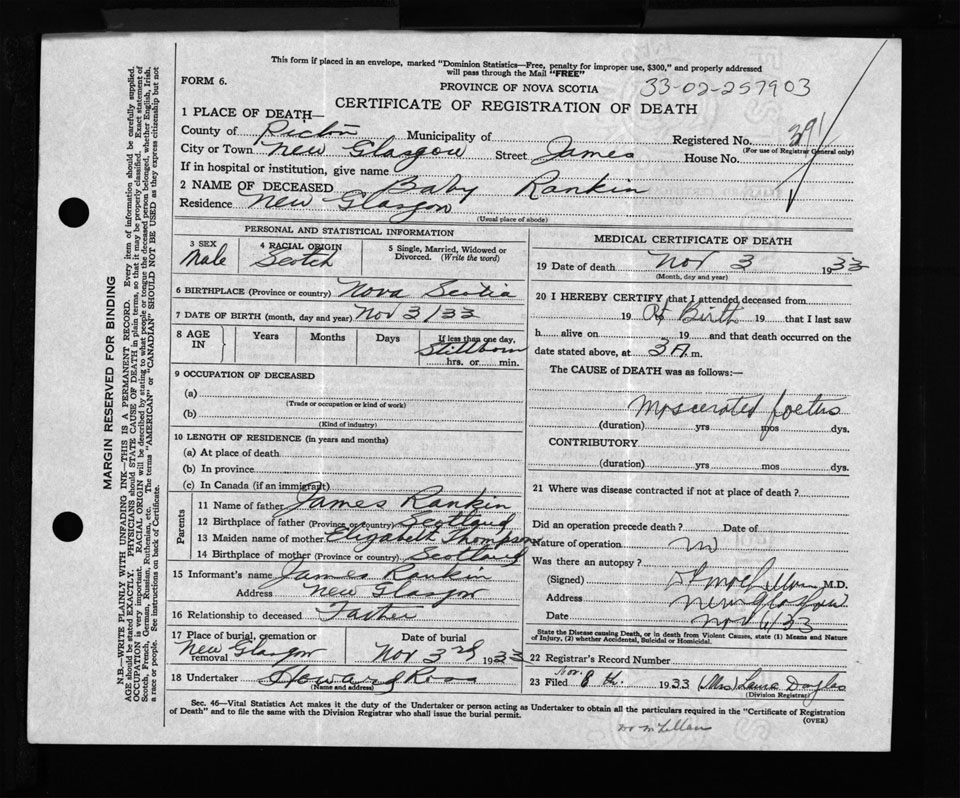 This form if placed in an envelope, marked "Dominion Statistics—Free, penalty for improper use, $300," and properly addressed
will pass through the Mail "FREE"
FORM 6.
PROVINCE OF NOVA SCOTIA
33-02-257903
CERTIFICATE OF REGISTRATION OF DEATH
1 PLACE OF DEATH—
County of Pictou Municipality of
Registered No. 391
(For use of Registrar General only)
City or Town New Glasgow Street James House No.
If in hospital or institution, give name
2 NAME OF DECEASED Baby Rankin
Residence New Glasgow
(Usual place of abode)
PERSONAL AND STATISTICAL INFORMATION
3 SEX 4 RACIAL ORIGIN 5 Single, Married, Widowed or
Divorced. (Write the word)
Male Scotch
6 BIRTHPLACE (Province or country) Nova Scotia
7 DATE OF BIRTH (month, day and year) Nov 3/33
8 AGE IN Years Months Days If less than one day,
Stillborn
hrs. or min.
9 OCCUPATION OF DECEASED
(a)
(Trade or occupation or kind of work)
(b)
(Kind of industry)
10 LENGTH OF RESIDENCE (in years and months)
(a) At place of death
(b) In province
(c) In Canada (if an immigrant)
Parents
11 Name of father James Rankin
12 Birthplace of father (Province or country) Scotland
13 Maiden name of mother Elizabeth Thompson
14 Birthplace of mother (Province or country) Scotland
15 Informant's name James Rankin
Address New Glasgow
16 Relationship to deceased Father
17 Place of burial, cremation or
removal New Glasgow
Date of burial
Nov 3rd 1933
18 Undertaker Howard Ross
(Name and address)
MEDICAL CERTIFICATE OF DEATH
19 Date of death Nov 3 1933
(Month, day and year)
20 I HEREBY CERTIFY that I attended deceased from
19 At Birth 19 that I last saw
h alive on 19 and that death occurred on the
date stated above, at 3 A. m.
The CAUSE of DEATH was as follows:—
Mascerated foetus
(duration) yrs mos dys.
CONTRIBUTORY
(duration) yrs mos dys.
21 Where was disease contracted if not at place of death?
Did an operation precede death? Date of
Nature of operation no
Was there an autopsy?
(Signed) McLellan M.D.
Address New Glasgow
Date Nov 6/33
State the Disease causing Death, or in death from Violent Causes, state (1) Means and Nature
of Injury, (2) whether Accidental, Suicidal or Homicidal.
22 Registrar's Record Number
23 Filed Nov. 8th. 1933 (Mrs)
(Division Registrar)
Sec. 46—Vital Statistics Act makes it the duty of the Undertaker or person acting as Undertaker to obtain all the particulars required in the "Certificate of Registration
of Death" and to file the same with the Division Registrar who shall issue the burial permit.
(OVER)
Dr McLellan
MARGIN RESERVED FOR BINDING
N.B.—WRITE PLAINLY WITH UNFADING INK—THIS IS A PERMANENT RECORD. Every item of information should be carefully supplied.
AGE should be stated EXACTLY. PHYSICIANS should STATE CAUSE OF DEATH in plain terms, so that it may be properly classified. Exact statement of
OCCUPATION is very important. RACIAL ORIGIN will be described by stating to what people or tongue the deceased person belonged, whether English, Irish,
Scotch, French, German, Russian, Ruthenian, etc. The terms "AMERICAN" or "CANADIAN" SHOULD NOT BE USED as they express citizenship but not
a race or people. See instructions on back of Certificate.